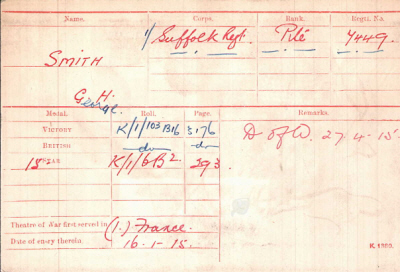 Name. Corps. Rank. Regtl. No.
1/ Suffolk Regt. Pte 7449.
SMITH
G. H.
George.
Medal. Roll. Page. Remarks.
VICTORY K/1/103 B16 3176 D of W. 27.4.15.
BRITISH do do
15 STAR K/1/6 B2 293
Theatre of War first served in (1.) France.
Date of entry therein 16.1.15.
K. 1380.